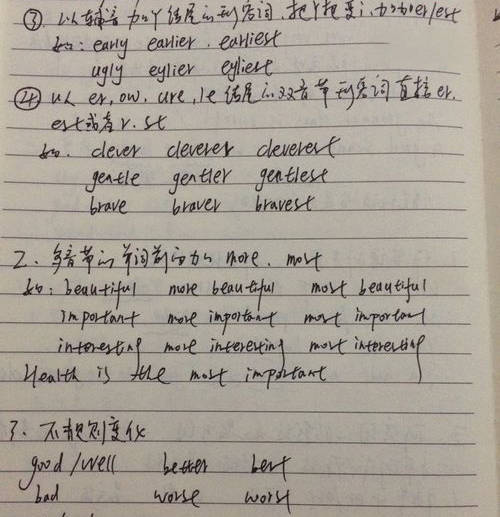 ③ 以辅音加y结尾的形容词,把y变i,加er/est
如: early earlier . earliest
ugly eylier eyliest
④ 以 er, ow, ure, le 结尾的双音节形容词直接er,
est或者r. st
如. clever cleverer cleverest
gentle gentler gentlest
brave braver bravest
2. 多音节的单词前面加 more, most
如: beautiful more beautiful most beautiful
important more important most important
interesting more interesting most interesting
Health is the most important
3. 不规则变化
good /well better best
bad worse worst